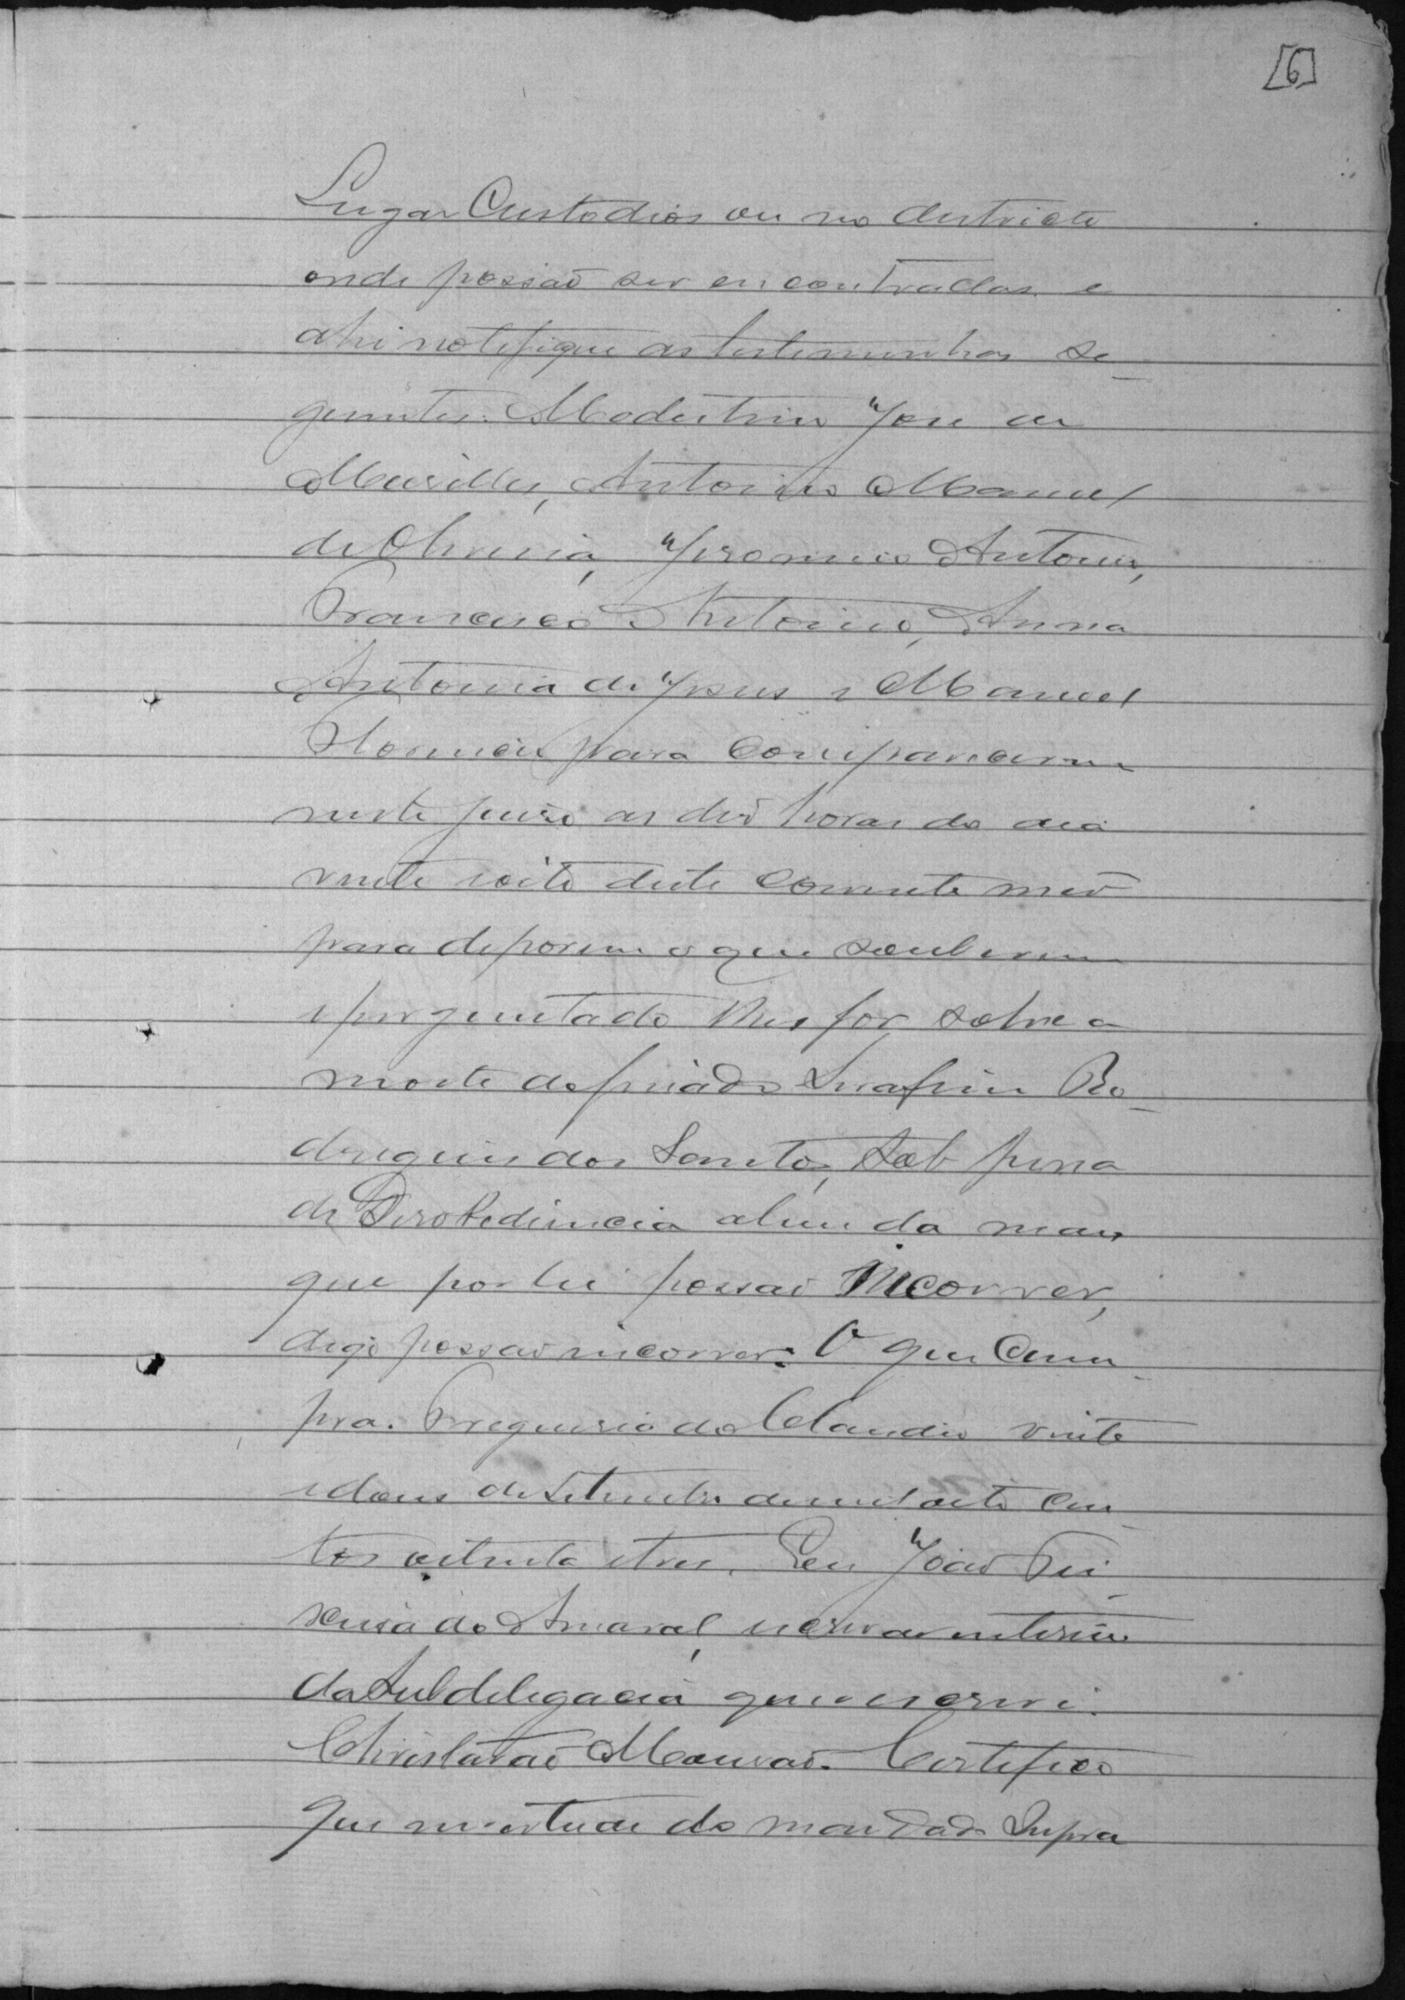 [6]
Lugar Custodios ou no destricto
onde possaõ ser encontradas e
ahi notefique as testemunhas se-
guintes: Modestino José de
Meirelles, Antonio Manuel
de Oliveira, Jeronimo Antonio,
Francisco Antonio, Anna
Antonia de Jesus e Manuel
para comparecerem
neste juiso as des horas do dia
vinte e oito deste corrente mes
para deporem o que souberem
e perguntado lhes for sobre a
morte do Serafim Ro-
drigues dos Santos, sob pena
de Desobediencia alem da mais
que por lei possaõ incorrer,
digo possaõ incorrer: O que cum-
pra. Freguesia do Claudio vinte
e dous de Setembro de mil oito cen-
tos oitenta e tres. Eu João
do Amaral, escrivaõ interino
da Subdelegacia que o escrevi.
Christovaõ Mouraõ. Certifico
que em vertude do mandado Supra